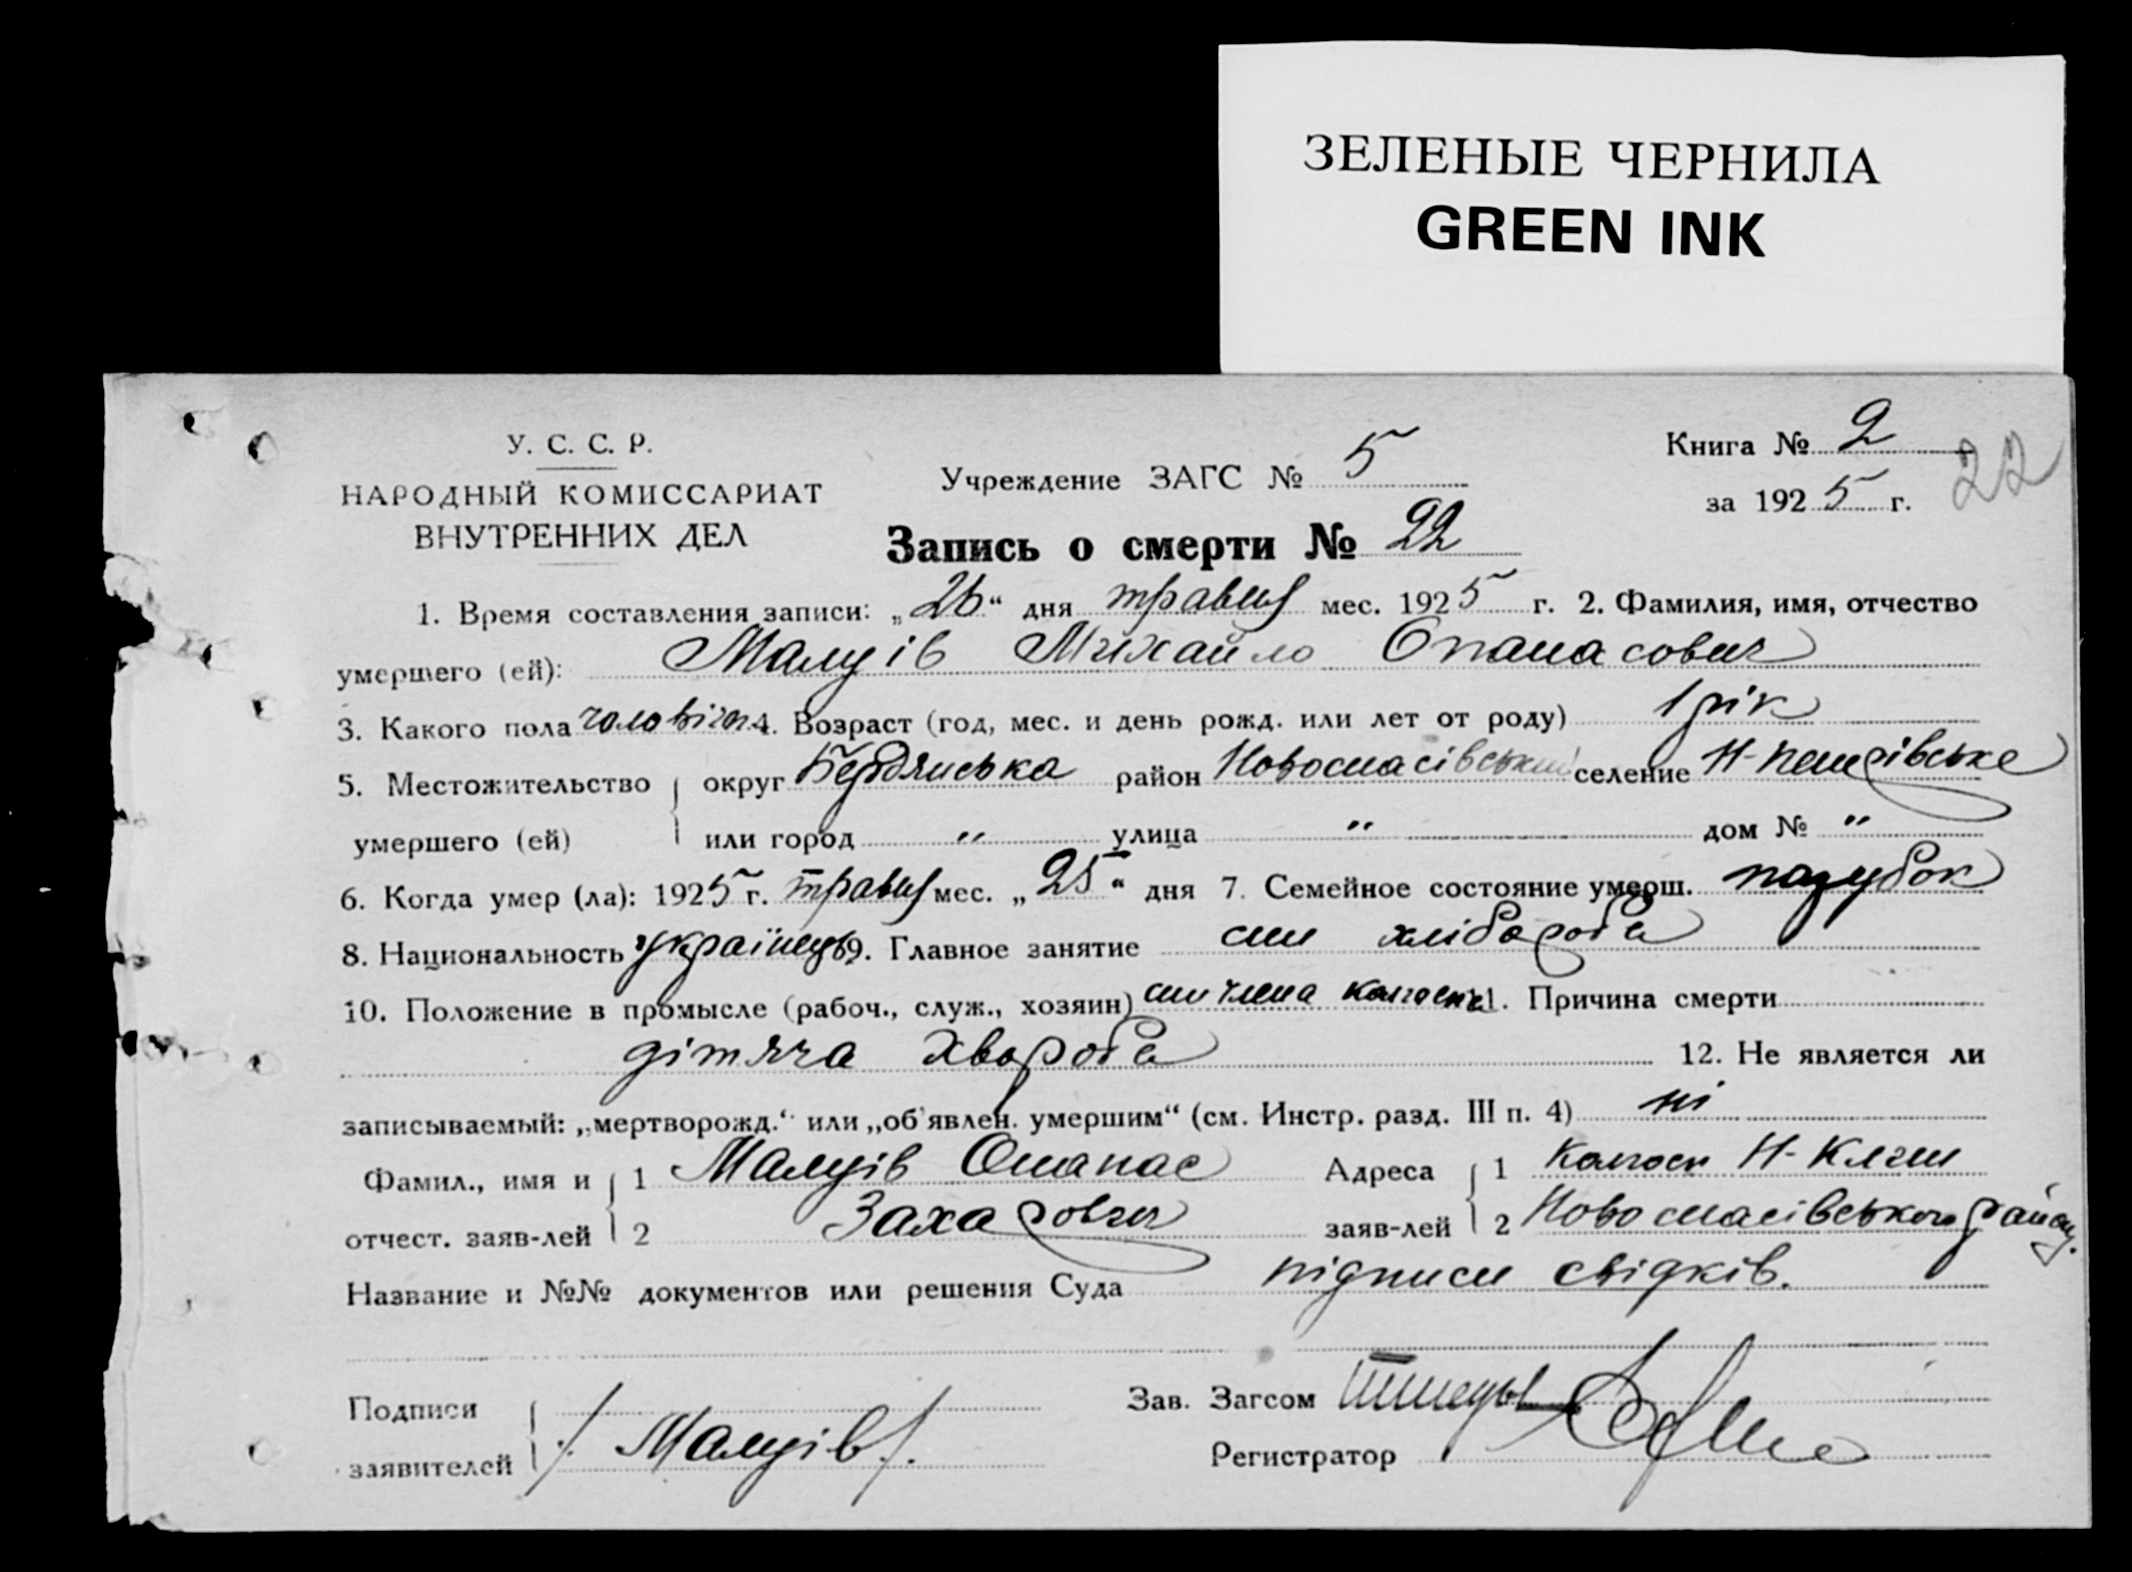 ЗЕЛЕНЫЕ ЧЕРНИЛА
GREEN INK
У. С. С. Р.
НАРОДНЫЙ КОМИССАРИАТ
ВНУТРЕННИХ ДЕЛ
Учреждение ЗАГС № 5
Книга № 2
за 1925 г.
22
Запись о смерти № 22
1. Время составления записи: „26“ дня травня мес. 1925 г. 2. Фамилия, имя, отчество
умершего (ей): Михайло Опанасович
3. Какого пола чоловічої 4. Возраст (год, мес. и день рожд. или лет от роду) 1 рік
5. Местожительство округ Бердянська район Новоспасівський селение
умершего (ей) или город " улица " дом № "
6. Когда умер (ла): 1925 г. травня мес. „25“ дня 7. Семейное состояние умерш. парубок
8. Национальность українець 9. Главное занятие син хлібороба
10. Положение в промысле (рабоч., служ., хозяин) син члена колгоспа 11. Причина смерти
дітяча хвороба 12. Не является ли
записываемый: „мертворожд.“ или „об'явлен. умершим“ (см. Инстр. разд. III п. 4) ні
Фамил., имя и 1 Опанас Адреса 1 Колгосп
отчест. заяв-лей 2 Захарович заяв-лей 2 Новоспасівського району.
Название и №№ документов или решения Суда підписи свідків.
Подписи Зав. Загсом
заявителей Регистратор